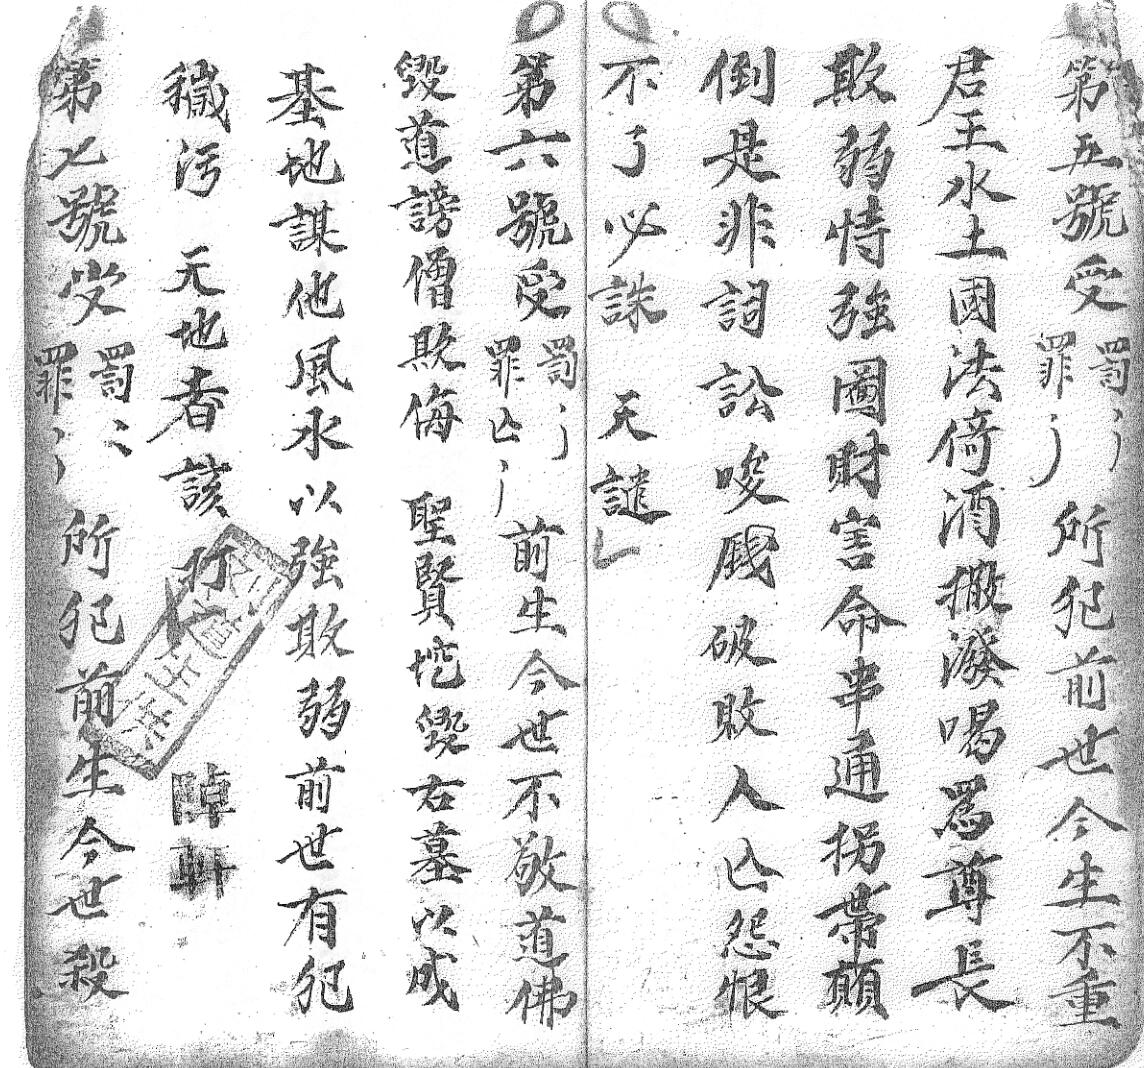 第五號受罰罪 所犯前世今生不重
君王水土國法倚酒撒潑喝罵尊長
欺弱恃強圖財害命串通拐帶顛
倒是非詞訟唆 破敗人亾怨恨
不了必誅 天譴
第六號受罰罪亾 前生今世不敬道佛
毀道謗僧欺侮 聖賢挖毀右墓以成
基地謀他風水以強欺弱前世有犯
穢污 天地者該 軒
第七號受罰罪 所犯前生今世殺